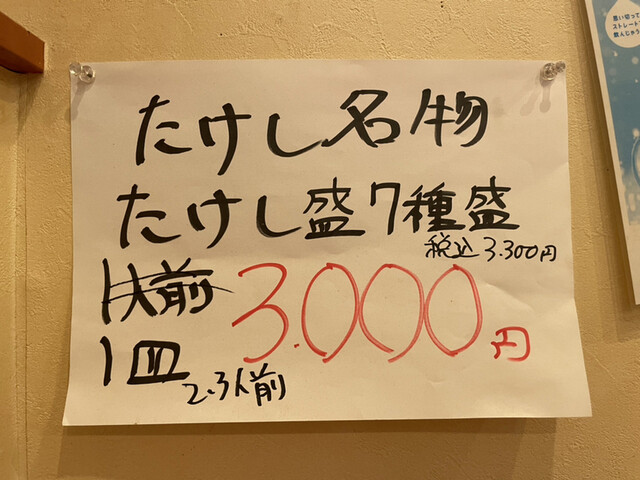 たけし名物
たけし盛7種盛
税込3.300円
1人前
3.000円
1皿
2.3人前
思い切って
ストレート
飲んじゃう